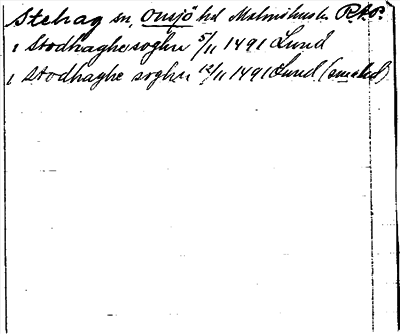 Stehag sn, Onsjö hd Malmöhus l. P.A.S.
i Stodhaghe soghn 5/11 1491 Lund
i Stodhaghe soghn 12/11 1491 Lund (